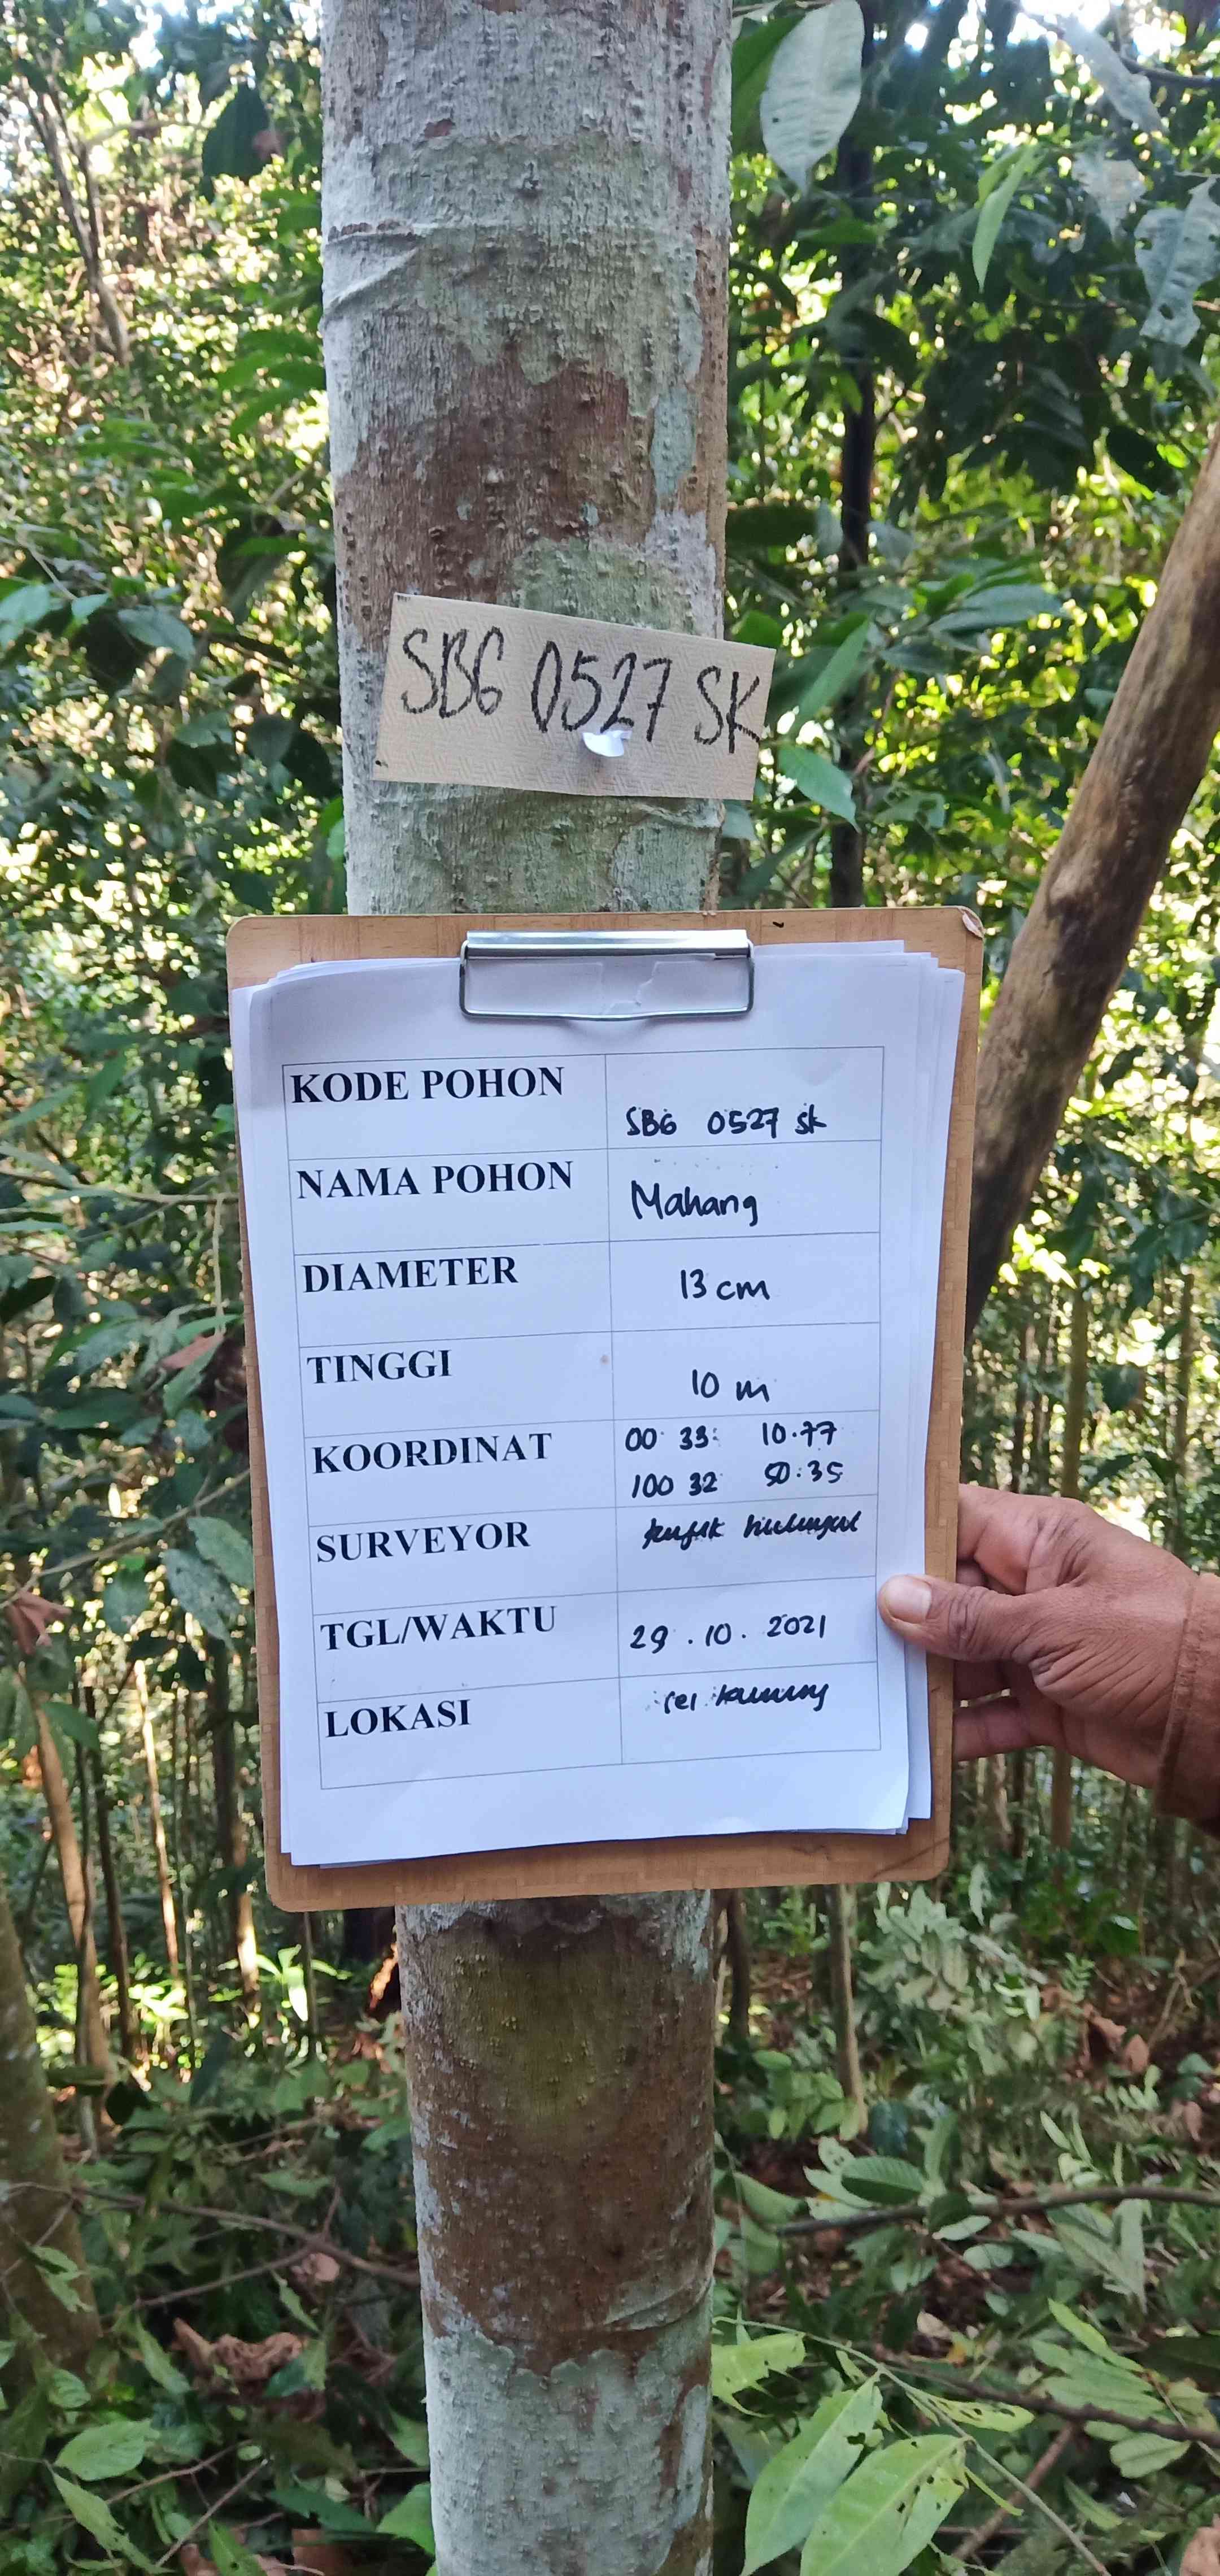 SBG 0527 SK
KODE POHON
SBG 0527 SK
NAMA POHON
Mahang
DIAMETER
13 cm
TINGGI
10 m
KOORDINAT
00 33: 10.77
100 32 50:35
SURVEYOR
TGL/WAKTU
29.10.2021
LOKASI
sei